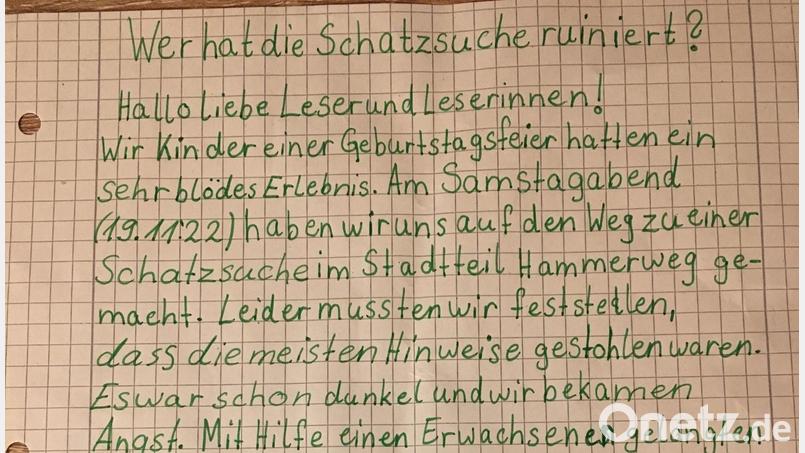 Wer hat die Schatzsuche ruiniert?
Hallo liebe Leser und Leserinnen!
Wir Kinder einer Geburtstagsfeier hatten ein
sehr blödes Erlebnis. Am Samstagabend
(19.11.22) haben wir uns auf den Weg zu einer
Schatzsuche im Stadtteil Hammerweg ge-
macht. Leider mussten wir feststellen,
dass die meisten Hinweise gestohlen waren.
Es war schon dunkel und wir bekamen
Angst. Mit Hilfe einen Erwachsenen gelangten
Onetz.de